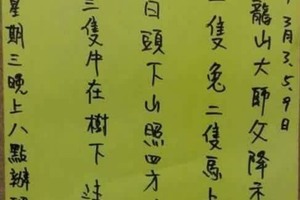 3月3.5.9
龍山大師父降示
一隻兔二隻馬上
日頭下山照四方
三隻牛在樹下
星期三晚上八點辦